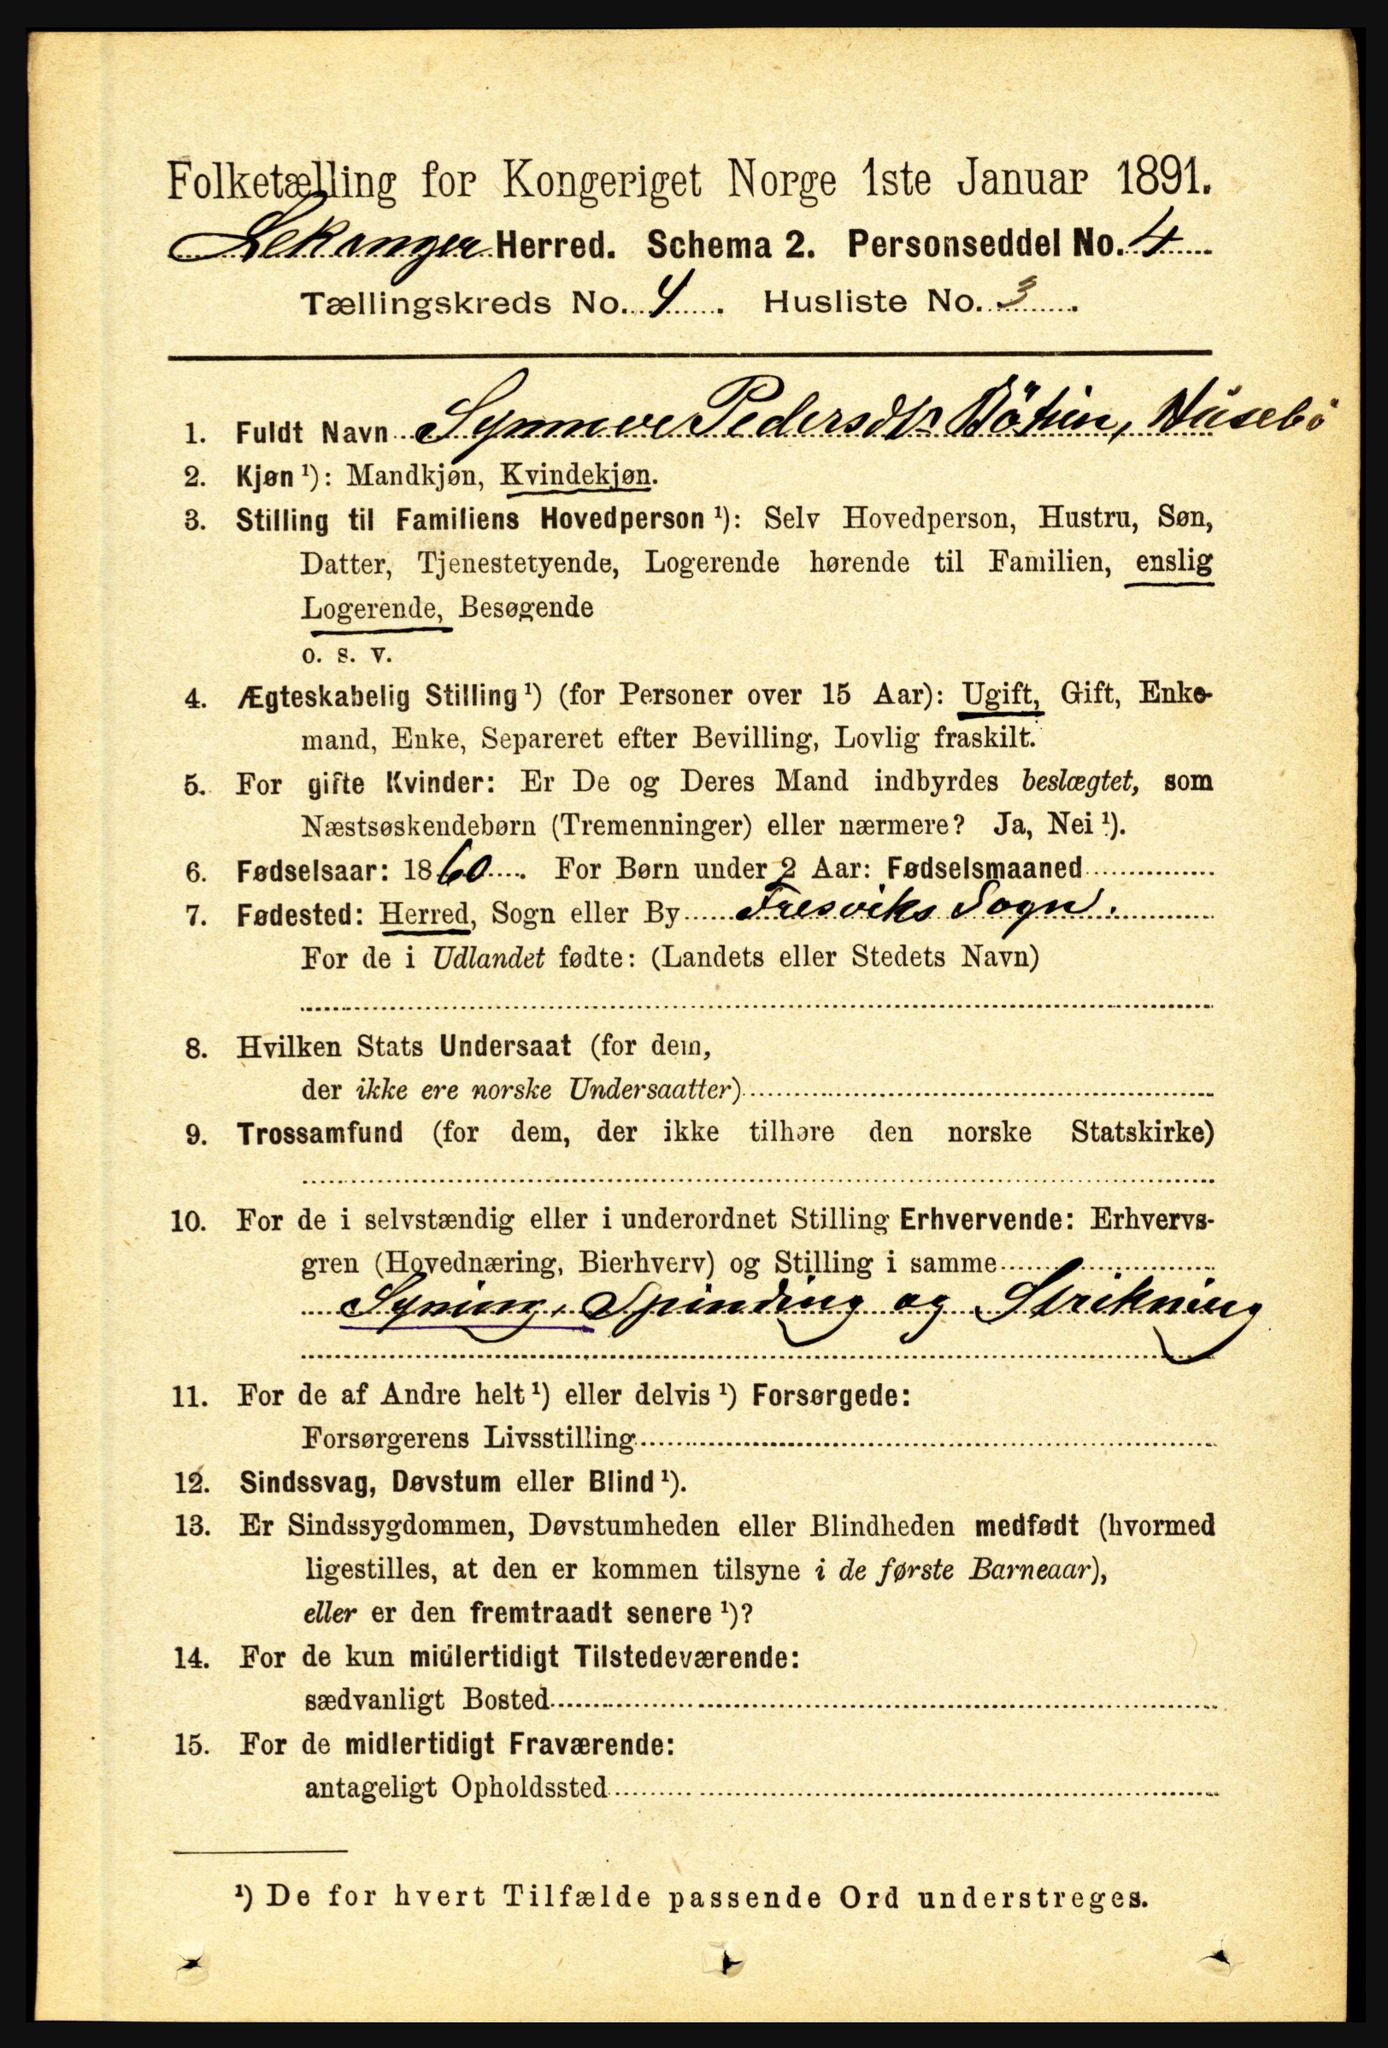 Folketælling for Kongeriget Norge 1ste Januar 1891.
Lekanger Herred. Schema 2. Personseddel No. 4
Tællingskreds No. 4. Husliste No. 3.
1. Fuldt Navn Synneve Pedersdtr Bötun, Husebö
2. Kjøn ¹): Mandkjøn, Kvindekjøn.
3. Stilling til Familiens Hovedperson ¹): Selv Hovedperson, Hustru, Søn,
Datter, Tjenestetyende, Logerende hørende til Familien, enslig
Logerende, Besøgende
o. s. v.
4. Ægteskabelig Stilling ¹) (for Personer over 15 Aar): Ugift, Gift, Enke-
mand, Enke, Separeret efter Bevilling, Lovlig fraskilt.
5. For gifte Kvinder: Er De og Deres Mand indbyrdes beslægtet, som
Næstsøskendebørn (Tremenninger) eller nærmere? Ja, Nei ¹).
6. Fødselsaar: 1860. For Børn under 2 Aar: Fødselsmaaned
7. Fødested: Herred, Sogn eller By Fresviks Sogn.
For de i Udlandet fødte: (Landets eller Stedets Navn)
8. Hvilken Stats Undersaat (for dem,
der ikke ere norske Undersaatter)
9. Trossamfund (for dem, der ikke tilhøre den norske Statskirke)
10. For de i selvstændig eller i underordnet Stilling Erhvervende: Erhvervs-
gren (Hovednæring, Bierhverv) og Stilling i samme
Syning, Spinding og Strikning
11. For de af Andre helt ¹) eller delvis ¹) Forsørgede:
Forsørgerens Livsstilling
12. Sindssvag, Døvstum eller Blind ¹).
13. Er Sindssygdommen, Døvstumheden eller Blindheden medfødt (hvormed
ligestilles, at den er kommen tilsyne i de første Barneaar),
eller er den fremtraadt senere ¹)?
14. For de kun midlertidigt Tilstedeværende:
sædvanligt Bosted
15. For de midlertidigt Fraværende:
antageligt Opholdssted
¹) De for hvert Tilfælde passende Ord understreges.